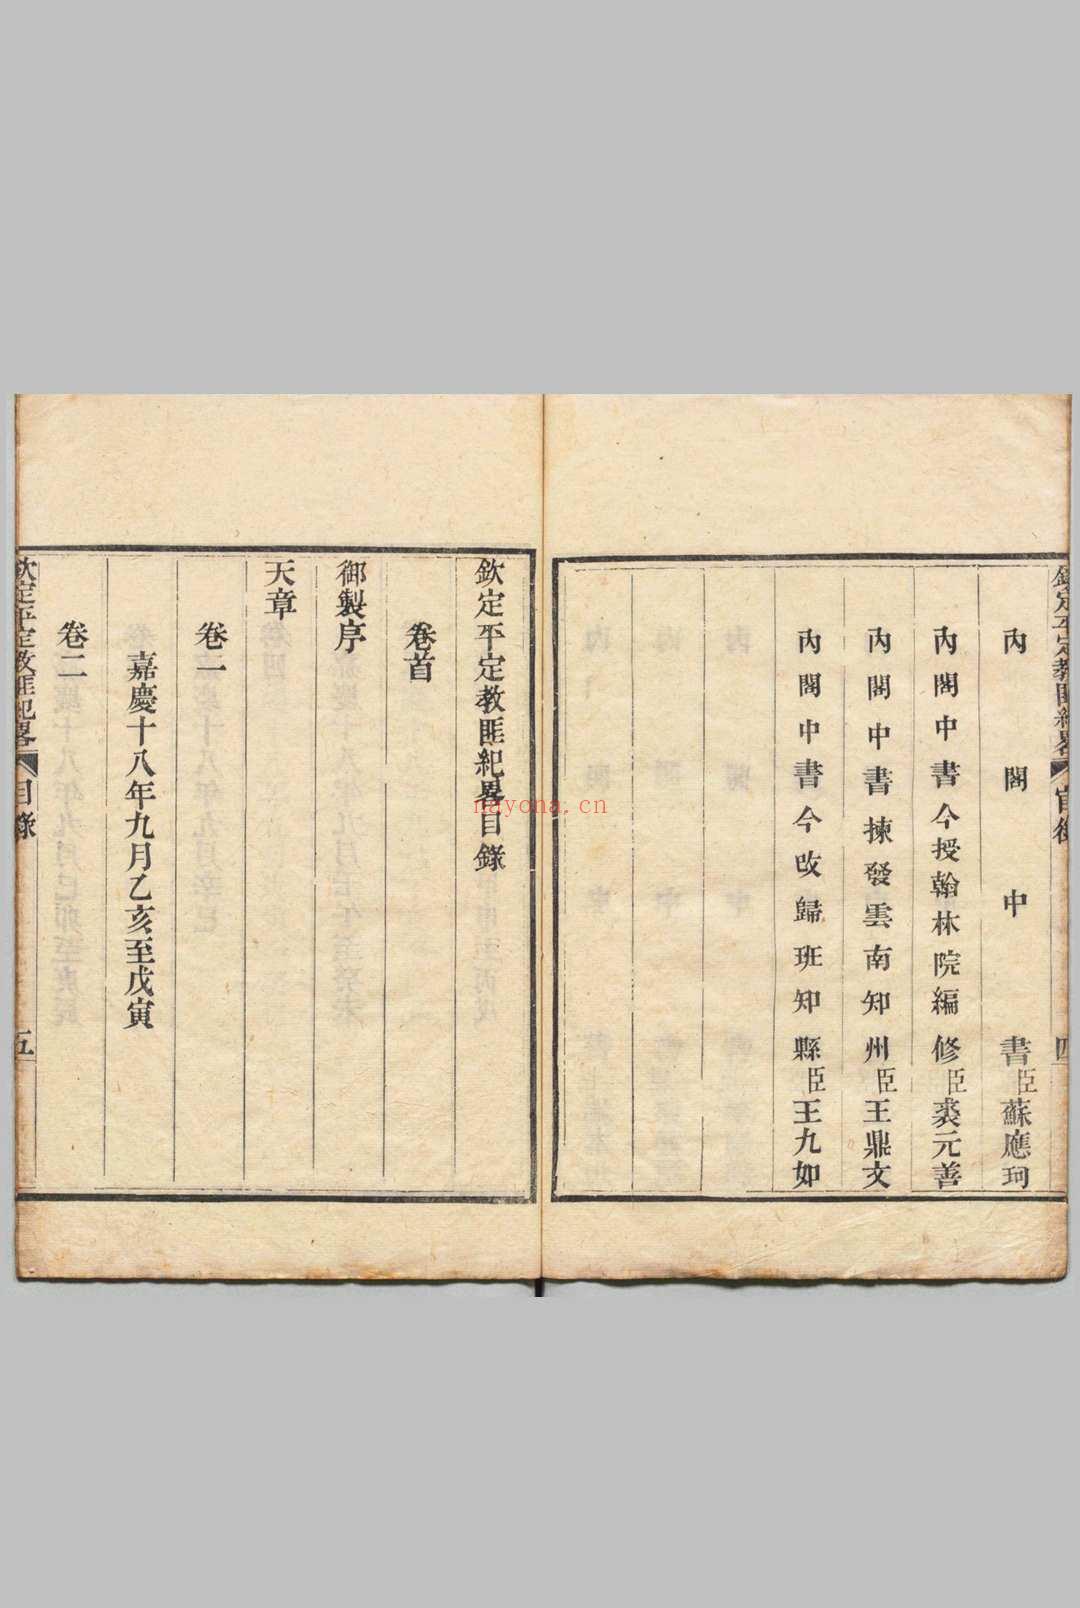 欽定平定教匪紀畧
官銜
四
內閣中書臣蘇應珂
內閣中書今授翰林院編修臣裘元善
內閣中書揀發雲南知州臣王鼎文
內閣中書今改歸班知縣臣王九如
欽定平定教匪紀畧目錄
卷首
御製序
天章
卷一
嘉慶十八年九月乙亥至戊寅
卷二
欽定平定教匪紀畧
目錄
五
nayona.cn